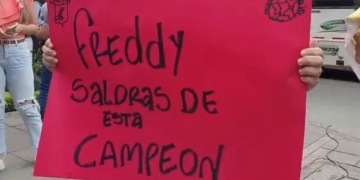 FREDDY
SALDRAS DE
ESTA
CAMPEON